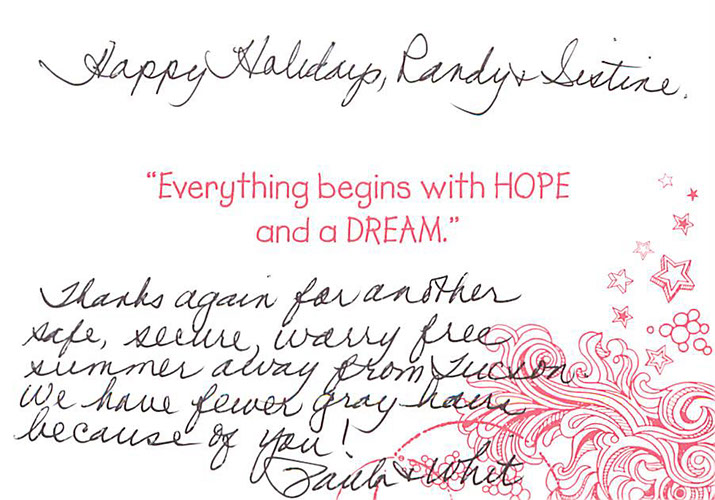 Happy Holidays, Randy & Sistine.
"Everything begins with HOPE
and a DREAM."
Thanks again for another
safe, secure, worry free
summer away from Tucson.
We have fewer gray hairs
because of you!
Paula & Whit